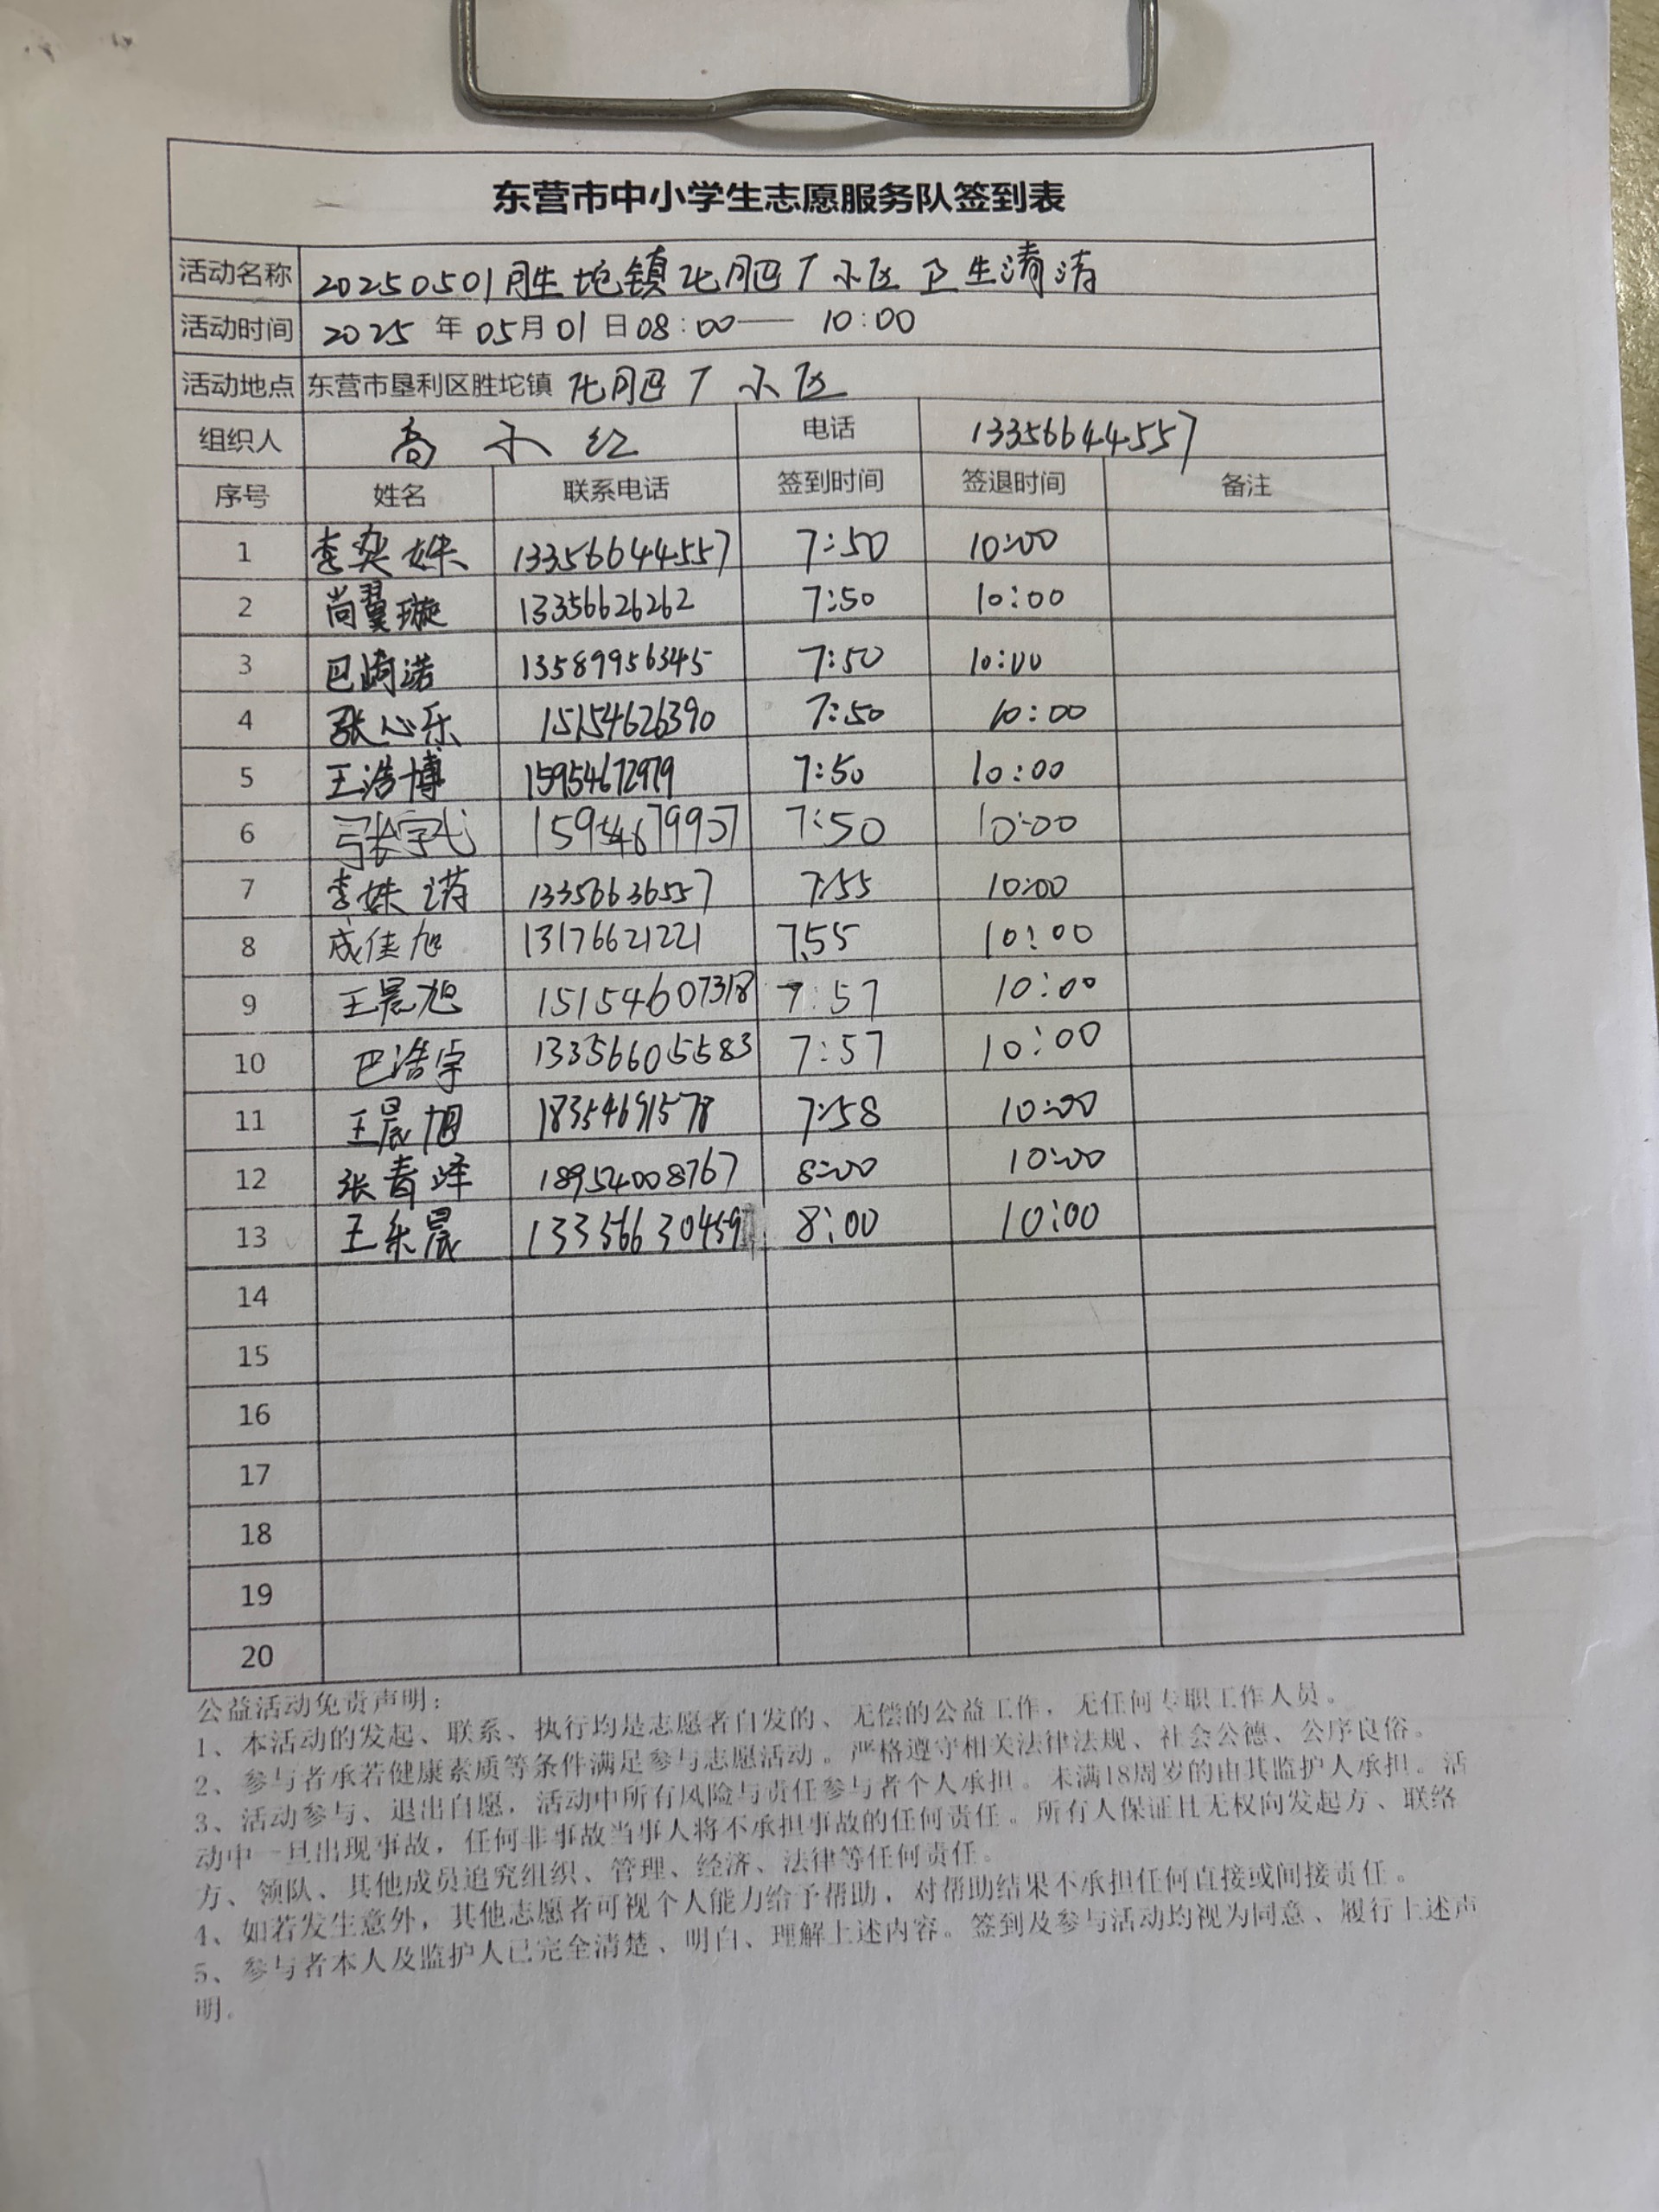 东营市中小学生志愿服务队签到表
活动名称 20250501胜坨镇化肥厂小区卫生清洁
活动时间 2025 年 05月 01 日 08:00—— 10:00
活动地点 东营市垦利区胜坨镇 化肥厂小区
组织人 高小红 电话 13356644557
序号 姓名 联系电话 签到时间 签退时间 备注
1 李奕姝 13356644557 7:50 10:00
2 尚翼璇 13356626262 7:50 10:00
3 巴诺 13589956345 7:50 10:00
4 张心乐 15154626390 7:50 10:00
5 王浩博 15954672979 7:50 10:00
6 张宇 15954679907 7:50 10:00
7 李姝诺 13356636557 7:55 10:00
8 成佳旭 13176621221 7.55 10:00
9 王晨旭 15154607318 7:57 10:00
10 巴浩宇 13356605583 7:57 10:00
11 王晨旭 18354691578 7:58 10:00
12 张青峰 18954008767 8:00 10:00
13 王乐晨 13356630459 8:00 10:00
14
15
16
17
18
19
20
公益活动免责声明：
1、本活动的发起、联系、执行均是志愿者自发的、无偿的公益工作，无任何专职工作人员。
2、参与者承若健康素质等条件满足参与志愿活动。严格遵守相关法律法规、社会公德、公序良俗。
3、活动参与、退出自愿，活动中所有风险与责任参与者个人承担。未满18周岁的由其监护人承担。活
动中一旦出现事故，任何非事故当事人将不承担事故的任何责任。所有人保证且无权向发起方、联络
方、领队、其他成员追究组织、管理、经济、法律等任何责任。
4、如若发生意外，其他志愿者可视个人能力给予帮助，对帮助结果不承担任何直接或间接责任。
5、参与者本人及监护人已完全清楚、明白、理解上述内容。签到及参与活动均视为同意、履行上述声
明。